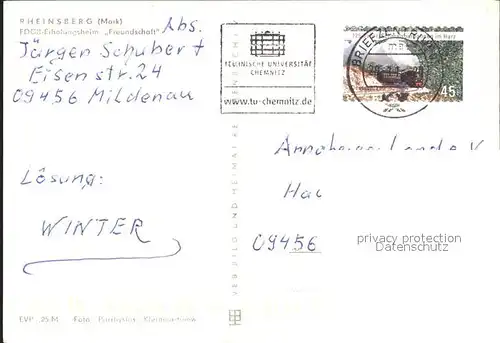 RHEINSBERG (Mark)
FDGB-Erholungsheim „Freundschaft"
Abs.
Jürgen Schubert
Eisenstr. 24
09456 Mildenau
Lösung:
WINTER
EVP -,25 M Foto:
TECHNISCHE UNIVERSITÄT
CHEMNITZ
www.tu-chemnitz.de
BRIEFZENTRUM
im Harz
45
VEB BILD UND HEIMAT
09456
privacy protection
Datenschutz